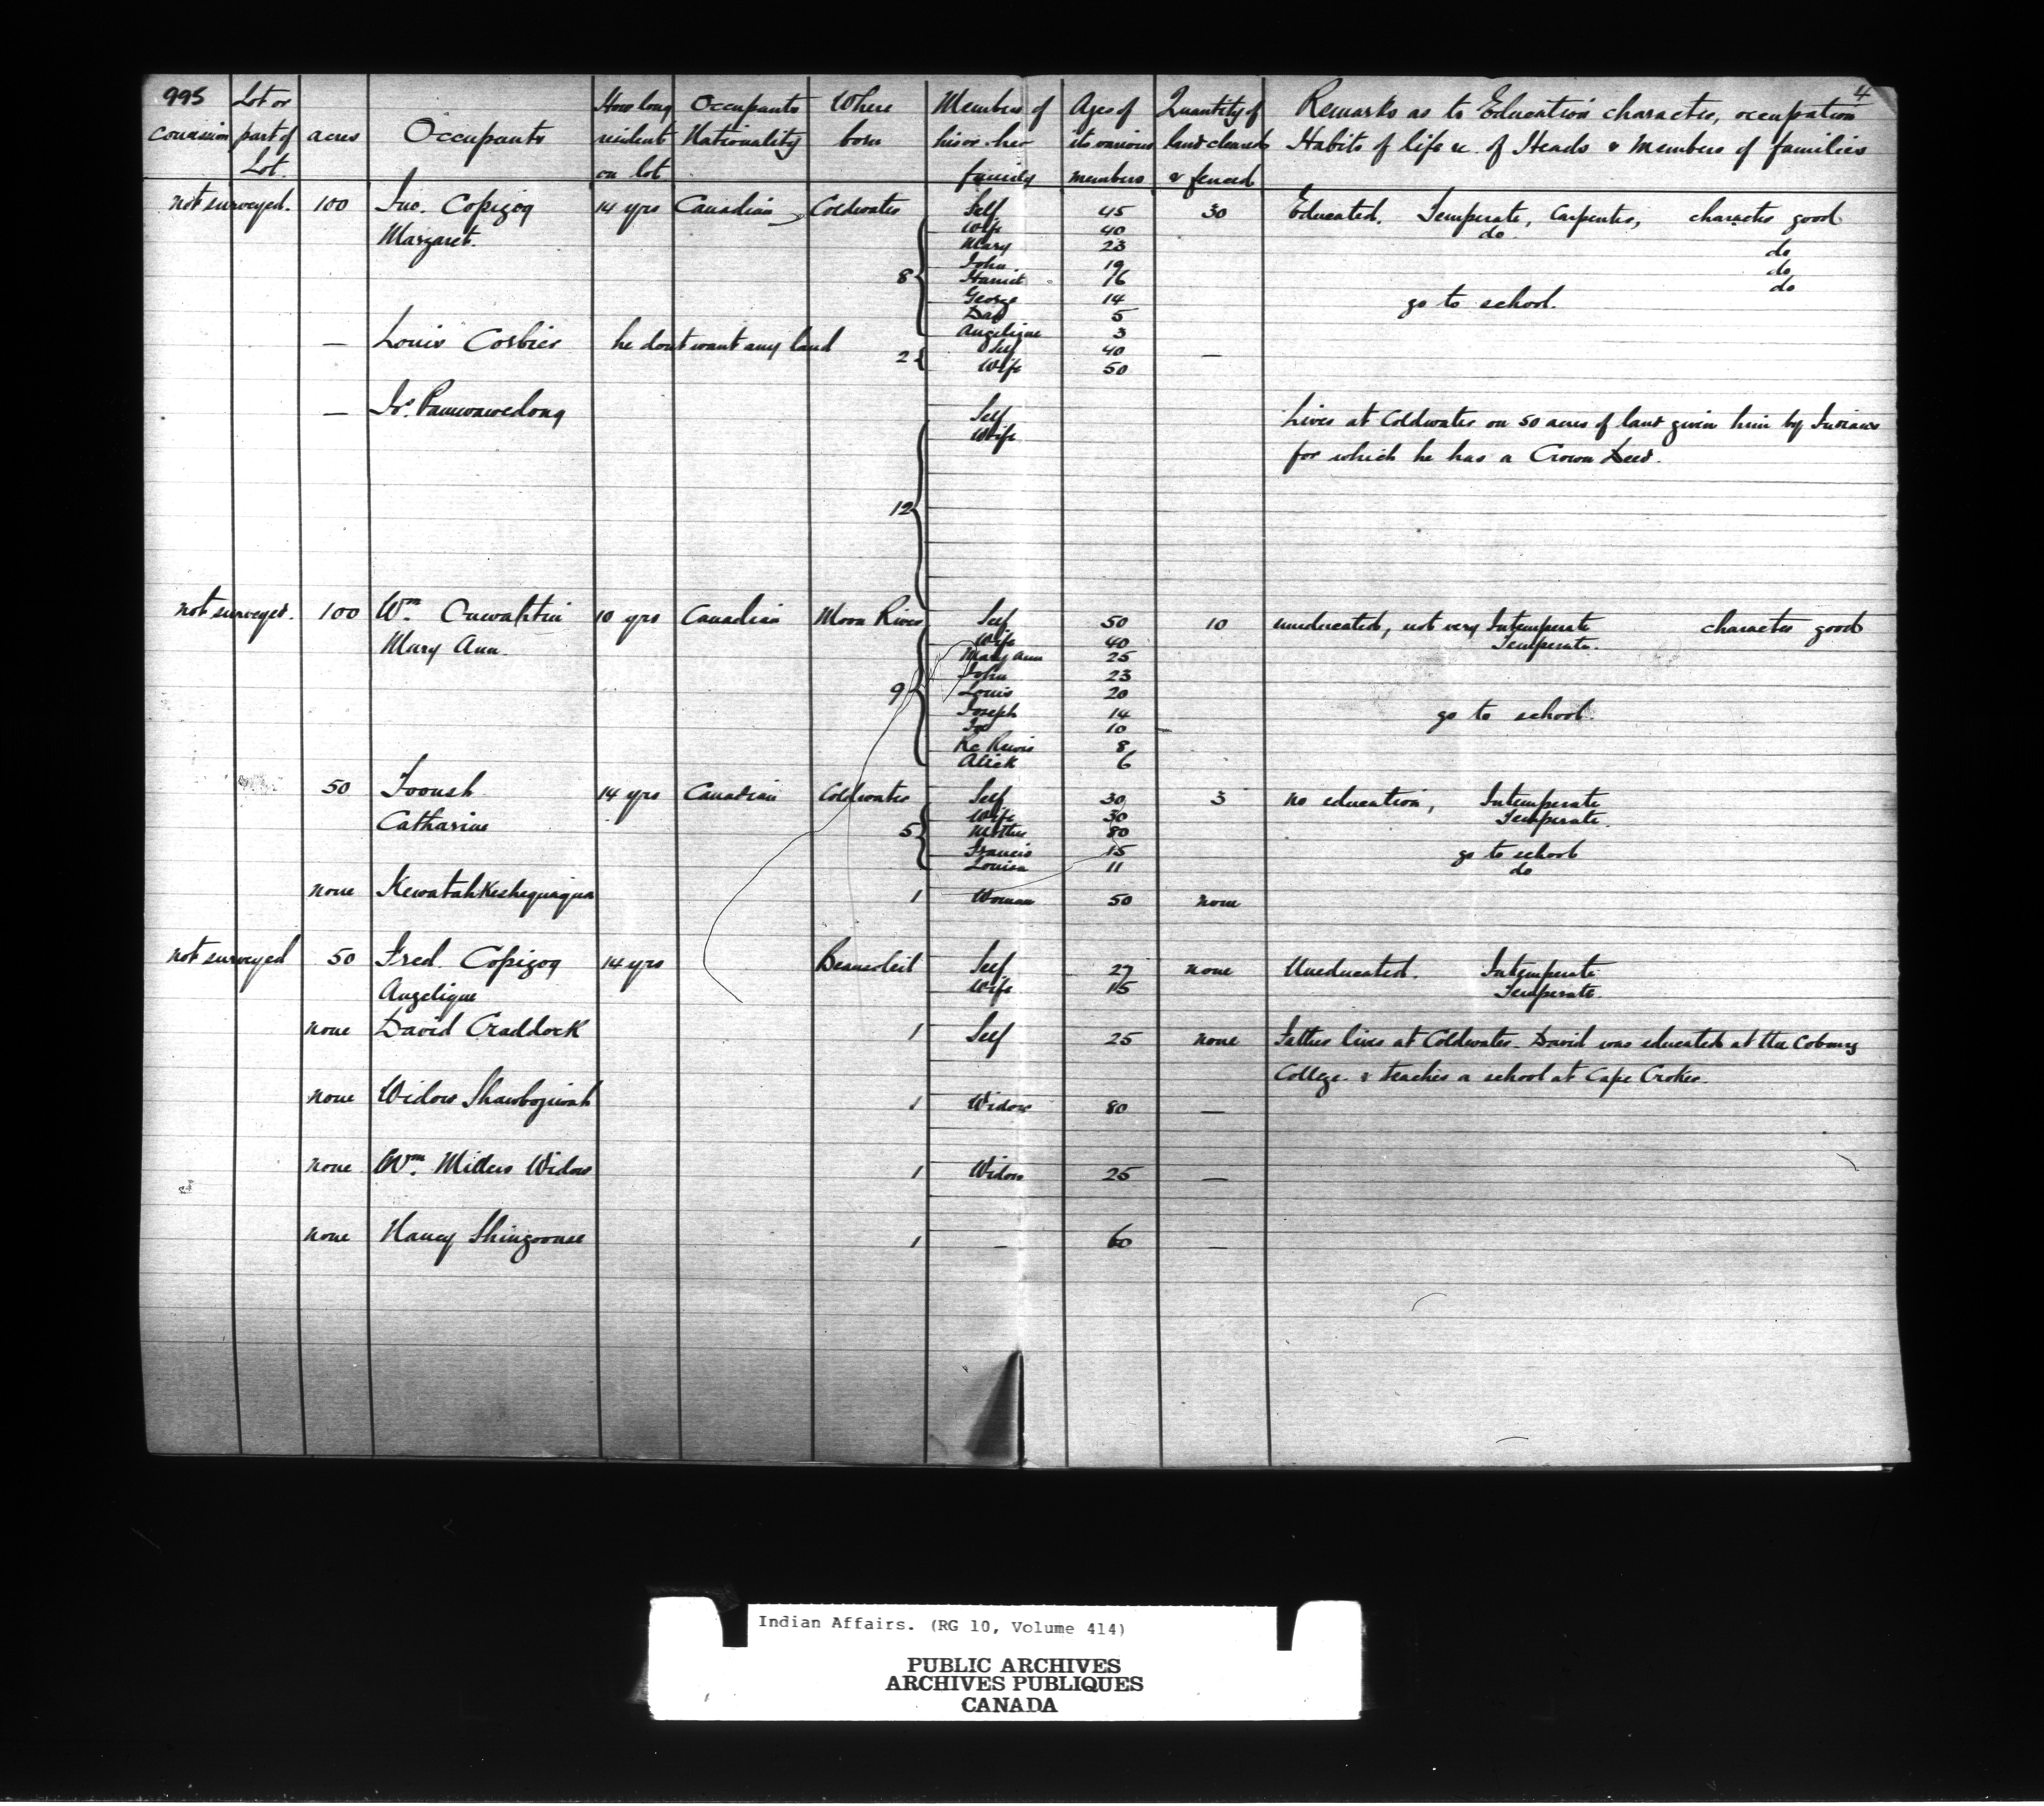 995 Lot or How long Occupants Where Members of Ages of Quantity of Remarks as to Education character, occupation 4
Concession part of acres Occupants resident Nationality born his or her its various land cleared Habits of life &c. of Heads & Members of families
Lot. on lot family members & fenced
not surveyed. 100 Jno. Copigog 14 yrs Canadian Coldwater Self 45 30 Educated. Temperate, Carpenter, character good
Margaret. Wife 40 do
Mary 23 do
John 19 do
8 Harriet 16 do
George 14 go to school.
5
Angelique 3
— Louis Corbier he dont want any land 2 Self 40 —
Wife 50
— Js. Pamwawedong Self Lives at Coldwater on 50 acres of land given him by Indians
Wife for which he has a Crown Deed.
12
not surveyed. 100 Wm Onwahtin 10 yrs Canadian Moon River Self 50 10 uneducated, not very Intemperate character good
Mary Ann. Wife 40 Temperate.
Mary Ann 25
John 23
9 Louis 20
Joseph 14 go to school.
10
8
Alick 6
50 Toonsh 14 yrs Canadian Coldwater Self 30 3 no education, Intemperate
Catharine Wife 30 Temperate.
5 Mother 80
Francis 15 go to school
Louisa 11 do
none Kewatahkeshequaqua 1 Woman 50 none
not surveyed 50 Fred. Copigog 14 yrs Beausoleil Self 27 none Uneducated. Intemperate
Angelique Wife 15 Temperate.
none David Craddock 1 Self 25 none Father lives at Coldwater. David was educated at the Cobourg
College. & teaches a school at Cape Croker.
none Widow Shawbogiwah 1 Widow 80 —
none Wm. Millers Widow 1 Widow 25 —
none Nancy Shingoonse 1 — 60 —
Indian Affairs. (RG 10, Volume 414)
PUBLIC ARCHIVES
ARCHIVES PUBLIQUES
CANADA